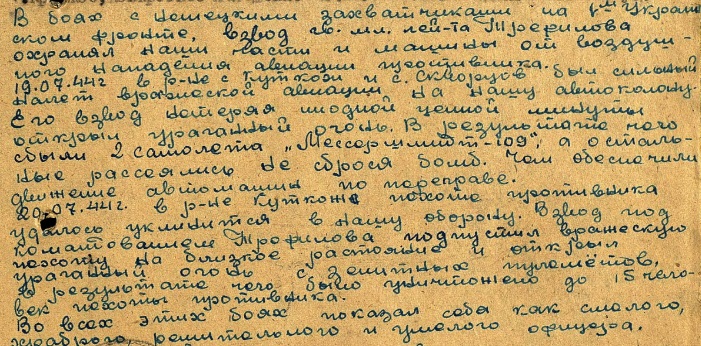 В боях с немецкими захватчиками на 1м Украин
ском фронте, взвод гв. мл. лей-та Трефилова
охранял наши части и машины от воздуш-
ного нападения авиации противника.
19.07.44г в р-не с. Куткож и с. Скворцов был сильный
налет вражеской авиации на нашу автоколону.
Его взвод нетеряя ниодной ценной минуты
открыл ураганный огонь. В результате чего
сбыли 2 самолета „Мессершмидт-109", а осталь-
ные рассеялись не сброся бомб. Чем обеспечили
движение автомашин по переправе.
20.07.44г. в р-не Куткож пехоте противника
удалось уклинится в нашу оборону. Взвод под
командованием Трефилова подпустил вражескую
пехоту на близкое растояние и открыл
ураганный огонь с зенитных пулеметов,
в результате чего было уничтожено до 15 чело-
век пехоты противника.
Во всех этих боях показал себя как смелого,
храброго, решительного и умелого офицера.